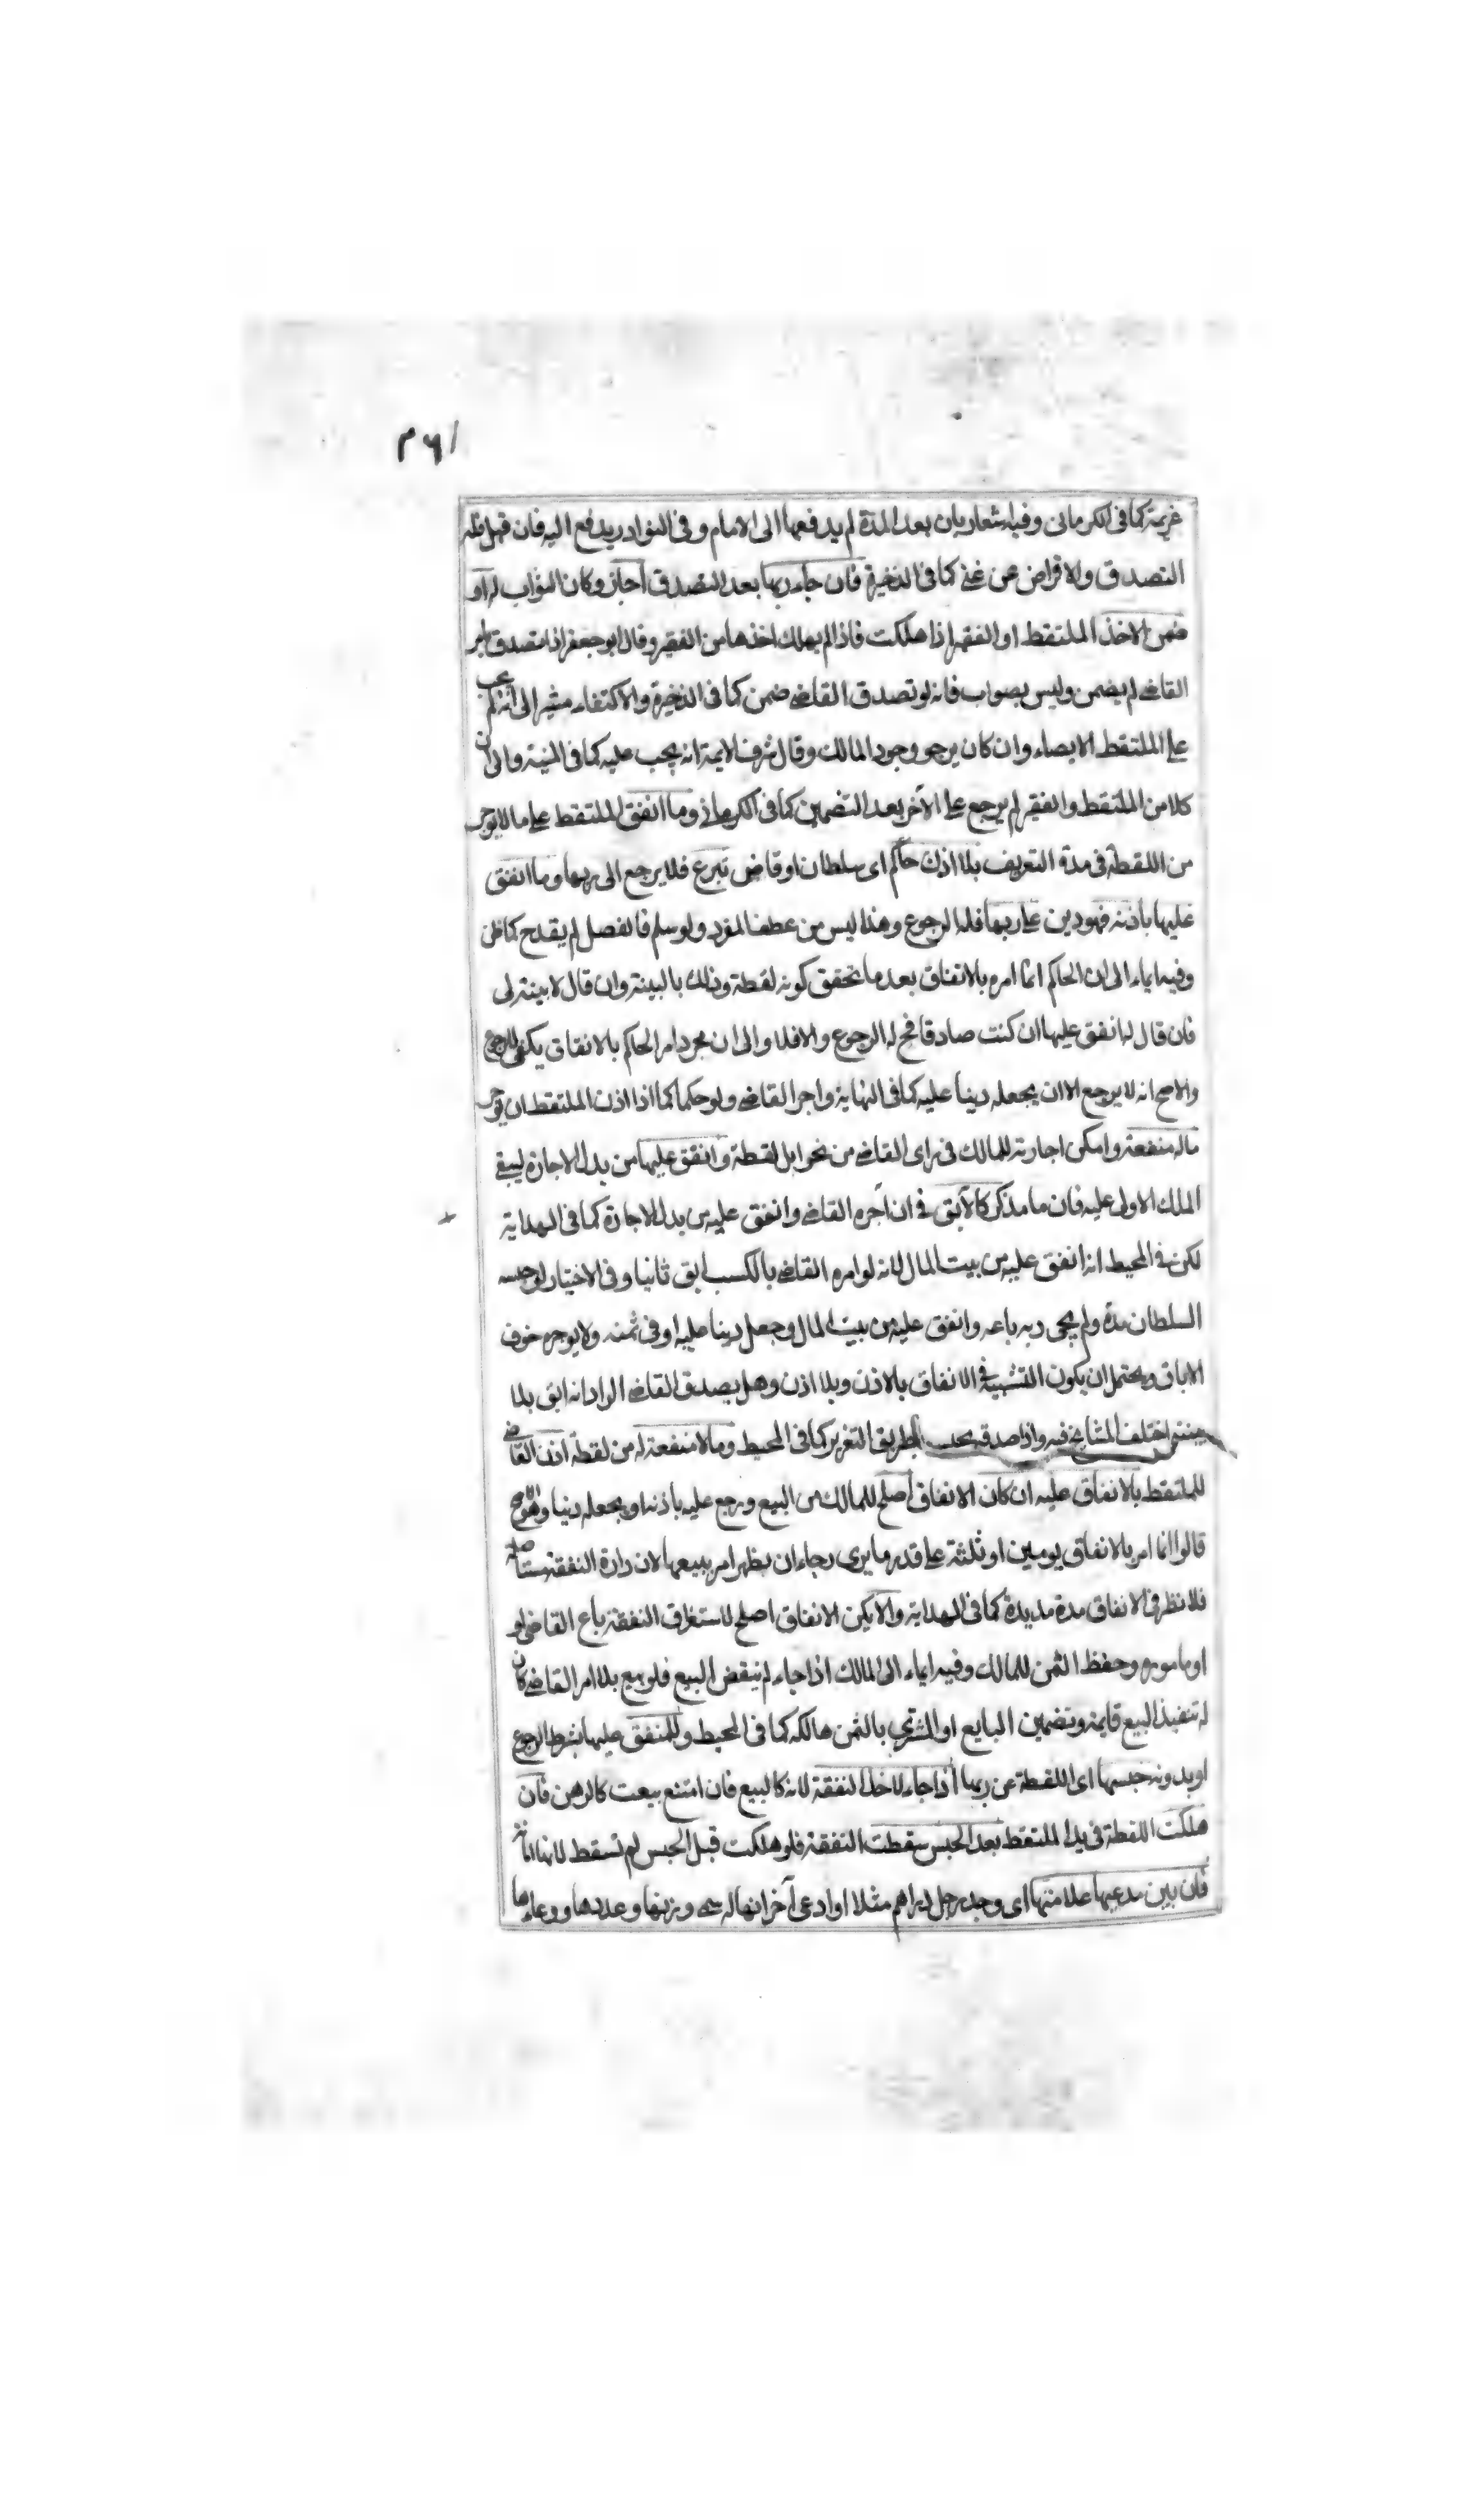 ٢٦١
عزيمة كما فى الكرمانى وفيه اشعار بان بعد المدة لم يدفعها الى الامام وفى النوادر يدفع اليه فان قبل فله
التصدق والاقراض من غنى كما فى الذخيرة فان جاء ربها بعد التصدق اجاز وكان الثواب له او
ضمن الاخذ الملتقط او الفقير اذا هلكت فاذا لم يهلك اخذها من الفقير وقال ابو جعفر اذا تصدق بامر
القاضى لم يضمن وليس بصواب فانه لو تصدق القاضى ضمن كما فى الذخيرة والاكتفاء مشير الى انه لم يجب
على الملتقط الايصاء وان كان يرجو وجود المالك وقال شرف الايمة انه يجب عليه كما فى المنية والى ان
كلا من الملتقط والفقير لم يرجع على الآخر بعد التضمين كما فى الكرمانى وما انفق الملتقط على ما لا يوجر
من اللقطة فى مدة التعريف بلا اذن حاكم اى سلطان او قاض تبرع فلا يرجع الى ربها وما انفق
عليها باذنه فهو دين على ربها فله الرجوع وهذا ليس من عطف المفرد ولو سلم فالفصل لم يقدح كما ظن
وفيه ايماء الى ان الحاكم انما امره بالانفاق بعد ما تحقق كونه لقطة وذلك بالبينة وان قال لا بينة لى
فان قال له انفق عليها ان كنت صادقا فح له الرجوع والا فلا والى ان مجرد امر الحاكم بالانفاق يكفى للرجوع
والاصح انه لا يرجع الا ان يجعله دينا عليه كما فى النهاية واجر القاضى ولو حكما كما اذا اذن الملتقط ان يوجر
ماله منفعة وامكن اجارته للمالك فى راى القاضى من نحو ابل لقطة وانفق عليها من بدل الاجارة ليبقى
الملك الاولى عليه فان ما مذكر كالآبق فى ان آجره القاضى وانفق عليه من بدل الاجارة كما فى الهداية
لكن فى المحيط انه انفق عليه من بيت المال لانه لو امره القاضى بالكسب ابق ثانيا وفى الاختيار لو حبسه
السلطان مدة ولم يجى ربه باعه وانفق عليه من بيت المال وجعل دينا عليه او فى ثمنه ولا يوجره خوف
الاباق ويحتمل ان يكون التشبيه فى الانفاق بالاذن وبلا اذن وهل يصدق القاضى الراد انه ابق بلا
بينة اختلف المشايخ فيه واذا صدقه يحبسه بطريق التعزير كما فى المحيط وما لا منفعة له من لقطة اذن القاضى
للملتقط بالانفاق عليه ان كان الانفاق اصلح للمالك من البيع ورجع عليه باذنه او بجعله دينا وهو الاصح
قالوا انما امر بالانفاق يومين او ثلثة على قدر ما يرى رجاء ان يظهر امر ببيعها لان دارة النفقة مستأصلة
فلا نظر فى الانفاق مدة مديدة كما فى الهداية والا يكن الانفاق اصلح لاستغراق النفقة باع القاضى لو
او ماموره وحفظ الثمن للمالك وفيه ايماء الى المالك اذا جاء لم ينقض البيع فلو بيع بلا امر القاضى كان
له تنفيذ البيع قايمة وتضمين البايع او المشترى بالثمن هالكة كما فى المحيط وللمنفق عليها بشرط الرجوع
او بدونه حبسها اى اللقطة عن ربها اذا جاء لاخذ النفقة لانه كالبيع فان امتنع بيعت كالرهن فان
هلكت اللقطة فى يد الملتقط بعد الحبس سقطت النفقة فلو هلكت قبل الحبس لم تسقط لانها امانة
فان بين مدعيها علامتها اى وجد رجل دراهم مثلا او ادعى آخر انها له سمى وزنها وعددها ووعاءها